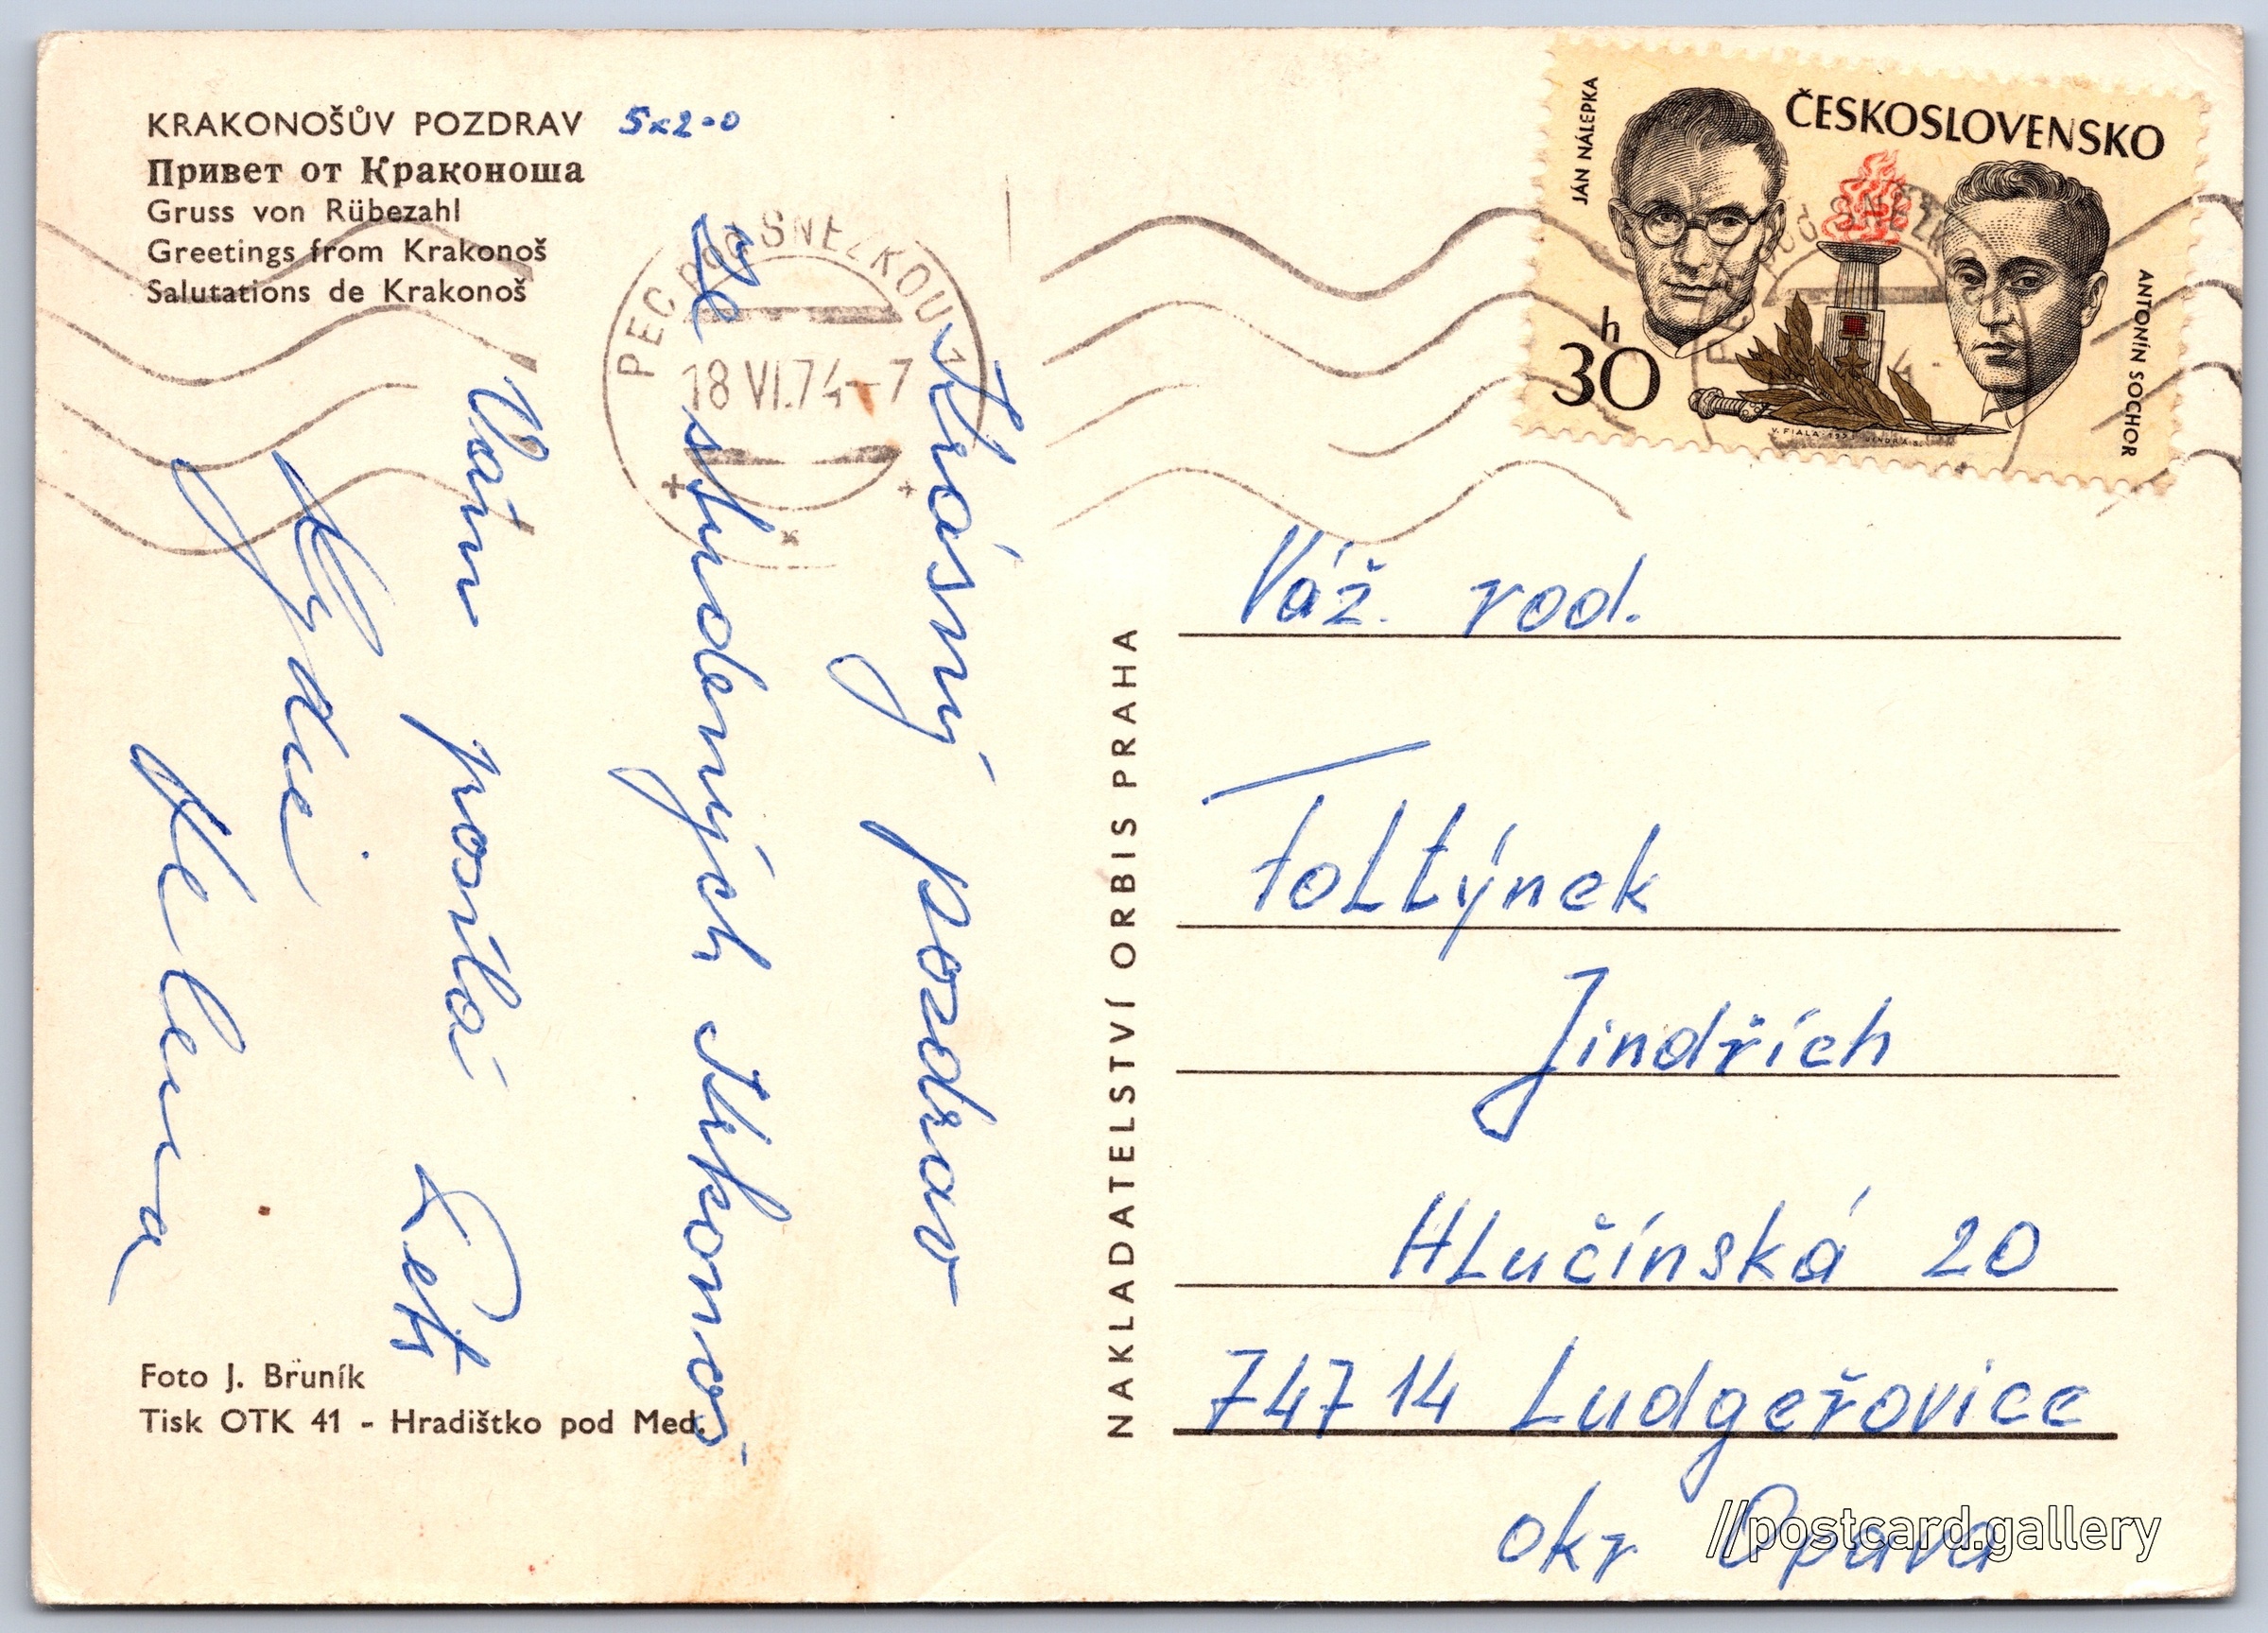 KRAKONOŠŮV POZDRAV 5x2-0
Привет от Краконоша
Gruss von Rübezahl
Greetings from Krakonoš
Salutations de Krakonoš
PEC POD SNĚŽKOU 1
18 VI.74-7
Krásný pozdrav
Ze studených Krkonoš
Vám posílá
Helena
Foto J. Bruník
Tisk OTK 41 - Hradištko pod Med.
NAKLADATELSTVÍ ORBIS PRAHA
ČESKOSLOVENSKO
JÁN NÁLEPKA
ANTONÍN SOCHOR
30 h
V. FIALA
Váž. rod.
Foltýnek
Jindřich
Hlučínská 20
747 14 Ludgeřovice
okr Opava
//postcard.gallery